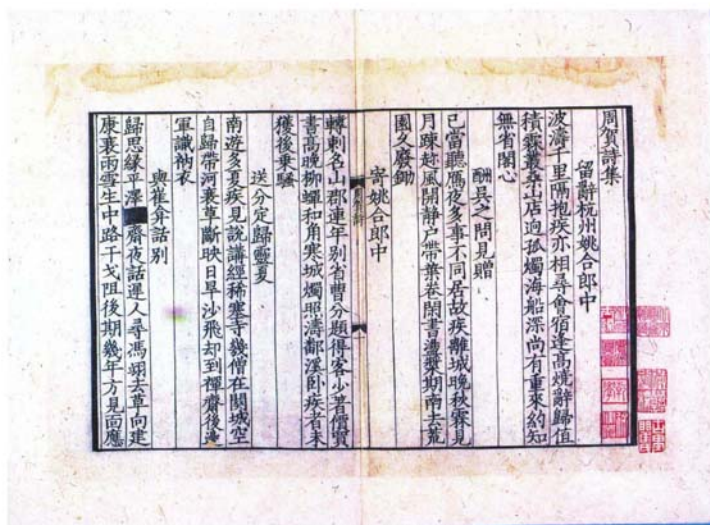 周賀詩集
留辭杭州姚合郎中
波濤千里隔抱疾亦相尋會宿逢高燒辭歸值
積霖叢桑山店迥孤燭海船深尚有重來約知
無省閣心
酬吳之問見贈
已當聽鴈夜多事不同居故疾離城晚秋霖見
月踈趁風開靜户帶葉卷閑書盪槳期南去荒
園久廢鋤
寄姚合郎中
轉刺名山郡連年別省曹分題得客少著價買
書高晚柳蟬和角寒城燭照濤鄱溪卧疾者未
獲後乗騷
送分定歸靈夏
南遊多夏疾見說講經稀塞寺幾僧在關城空
自歸帶河衰草斷映日旱沙飛却到禪齋後邊
軍識衲衣
與崔弇話别
歸思緣平澤齋夜話遲人尋馮翊去草向建
康衰雨雪生中路干戈阻後期幾年方見面應